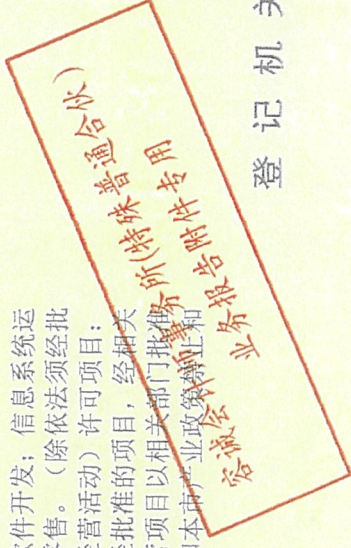 软件开发；信息系统运
售。（除依法须经批
经营活动）许可项目：
经批准的项目，经相关
项目以相关部门批准
和本市产业政策禁止和
容诚会计师事务所(特殊普通合伙)
业务报告附件专用
登记机关